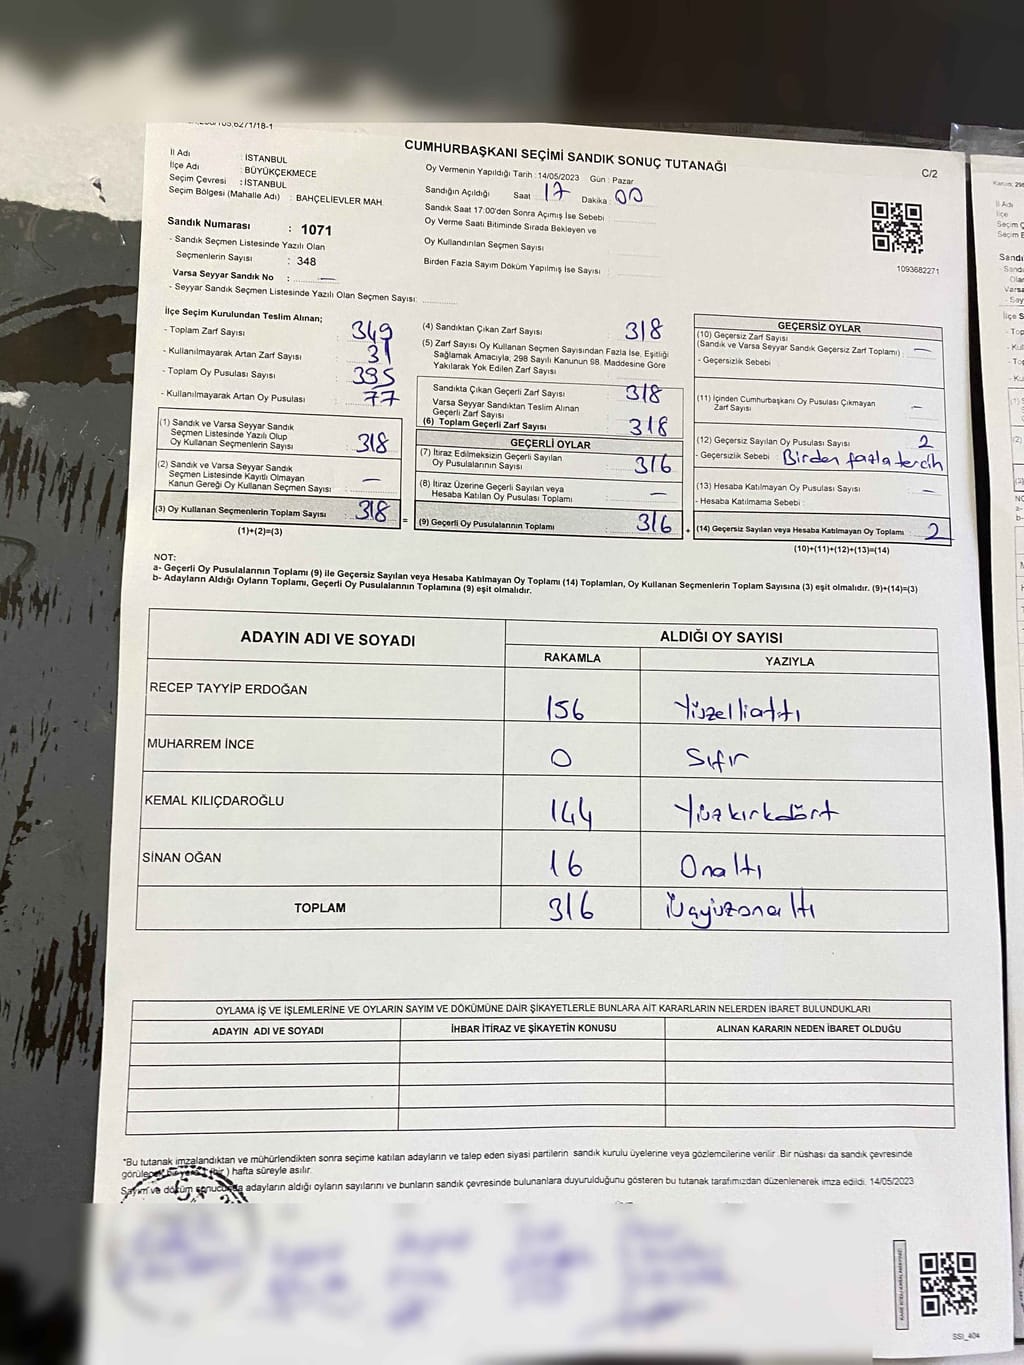 CUMHURBAŞKANI SEÇİMİ SANDIK SONUÇ TUTANAĞI
C/2
İl Adı : İSTANBUL
İlçe Adı : BÜYÜKÇEKMECE
Seçim Çevresi : İSTANBUL
Seçim Bölgesi (Mahalle Adı) : BAHÇELİEVLER MAH.
Oy Vermenin Yapıldığı Tarih : 14/05/2023 Gün : Pazar
Sandığın Açıldığı Saat 17 Dakika 00
Sandık Saat 17:00'den Sonra Açımış İse Sebebi :
Oy Verme Saati Bitiminde Sırada Bekleyen ve
Oy Kullandırılan Seçmen Sayısı
Birden Fazla Sayım Döküm Yapılmış İse Sayısı :
1093682271
Sandık Numarası : 1071
- Sandık Seçmen Listesinde Yazılı Olan
Seçmenlerin Sayısı : 348
Varsa Seyyar Sandık No : —
- Seyyar Sandık Seçmen Listesinde Yazılı Olan Seçmen Sayısı:
İlçe Seçim Kurulundan Teslim Alınan;
- Toplam Zarf Sayısı : 349
- Kullanılmayarak Artan Zarf Sayısı : 31
- Toplam Oy Pusulası Sayısı : 395
- Kullanılmayarak Artan Oy Pusulası : 77
(1) Sandık ve Varsa Seyyar Sandık
Seçmen Listesinde Yazılı Olup
Oy Kullanan Seçmenlerin Sayısı : 318
(2) Sandık ve Varsa Seyyar Sandık
Seçmen Listesinde Kayıtlı Olmayan
Kanun Gereği Oy Kullanan Seçmen Sayısı : —
(3) Oy Kullanan Seçmenlerin Toplam Sayısı : 318
(1)+(2)=(3)
(4) Sandıktan Çıkan Zarf Sayısı : 318
(5) Zarf Sayısı Oy Kullanan Seçmen Sayısından Fazla İse, Eşitliği
Sağlamak Amacıyla, 298 Sayılı Kanunun 98. Maddesine Göre
Yakılarak Yok Edilen Zarf Sayısı
Sandıkta Çıkan Geçerli Zarf Sayısı : 318
Varsa Seyyar Sandıktan Teslim Alınan
Geçerli Zarf Sayısı
(6) Toplam Geçerli Zarf Sayısı : 318
GEÇERLİ OYLAR
(7) İtiraz Edilmeksizin Geçerli Sayılan
Oy Pusulalarının Sayısı : 316
(8) İtiraz Üzerine Geçerli Sayılan veya
Hesaba Katılan Oy Pusulası Toplamı : —
= (9) Geçerli Oy Pusulalarının Toplamı : 316
GEÇERSİZ OYLAR
(10) Geçersiz Zarf Sayısı
(Sandık ve Varsa Seyyar Sandık Geçersiz Zarf Toplamı) : —
- Geçersizlik Sebebi :
(11) İçinden Cumhurbaşkanı Oy Pusulası Çıkmayan
Zarf Sayısı : —
(12) Geçersiz Sayılan Oy Pusulası Sayısı : 2
- Geçersizlik Sebebi : Birden fazla tercih
(13) Hesaba Katılmayan Oy Pusulası Sayısı : —
- Hesaba Katılmama Sebebi :
+ (14) Geçersiz Sayılan veya Hesaba Katılmayan Oy Toplamı : 2
(10)+(11)+(12)+(13)=(14)
NOT:
a- Geçerli Oy Pusulalarının Toplamı (9) ile Geçersiz Sayılan veya Hesaba Katılmayan Oy Toplamı (14) Toplamları, Oy Kullanan Seçmenlerin Toplam Sayısına (3) eşit olmalıdır. (9)+(14)=(3)
b- Adayların Aldığı Oyların Toplamı, Geçerli Oy Pusulalarının Toplamına (9) eşit olmalıdır.
ADAYIN ADI VE SOYADI ALDIĞI OY SAYISI
RAKAMLA YAZIYLA
RECEP TAYYİP ERDOĞAN 156 Yüzellialtı
MUHARREM İNCE 0 Sıfır
KEMAL KILIÇDAROĞLU 144 Yüzkırkdört
SİNAN OĞAN 16 Onaltı
TOPLAM 316 Üçyüzonaltı
OYLAMA İŞ VE İŞLEMLERİNE VE OYLARIN SAYIM VE DÖKÜMÜNE DAİR ŞİKAYETLERLE BUNLARA AİT KARARLARIN NELERDEN İBARET BULUNDUKLARI
ADAYIN ADI VE SOYADI İHBAR İTİRAZ VE ŞİKAYETİN KONUSU ALINAN KARARIN NEDEN İBARET OLDUĞU
*Bu tutanak imzalandıktan ve mühürlendikten sonra seçime katılan adayların ve talep eden siyasi partilerin sandık kurulu üyelerine veya gözlemcilerine verilir .Bir nüshası da sandık çevresinde
hafta süreyle asılır.
Sayım ve döküm sonucunda adayların aldığı oyların sayılarını ve bunların sandık çevresinde bulunanlara duyurulduğunu gösteren bu tutanak tarafımızdan düzenlenerek imza edildi. 14/05/2023
SSI_404